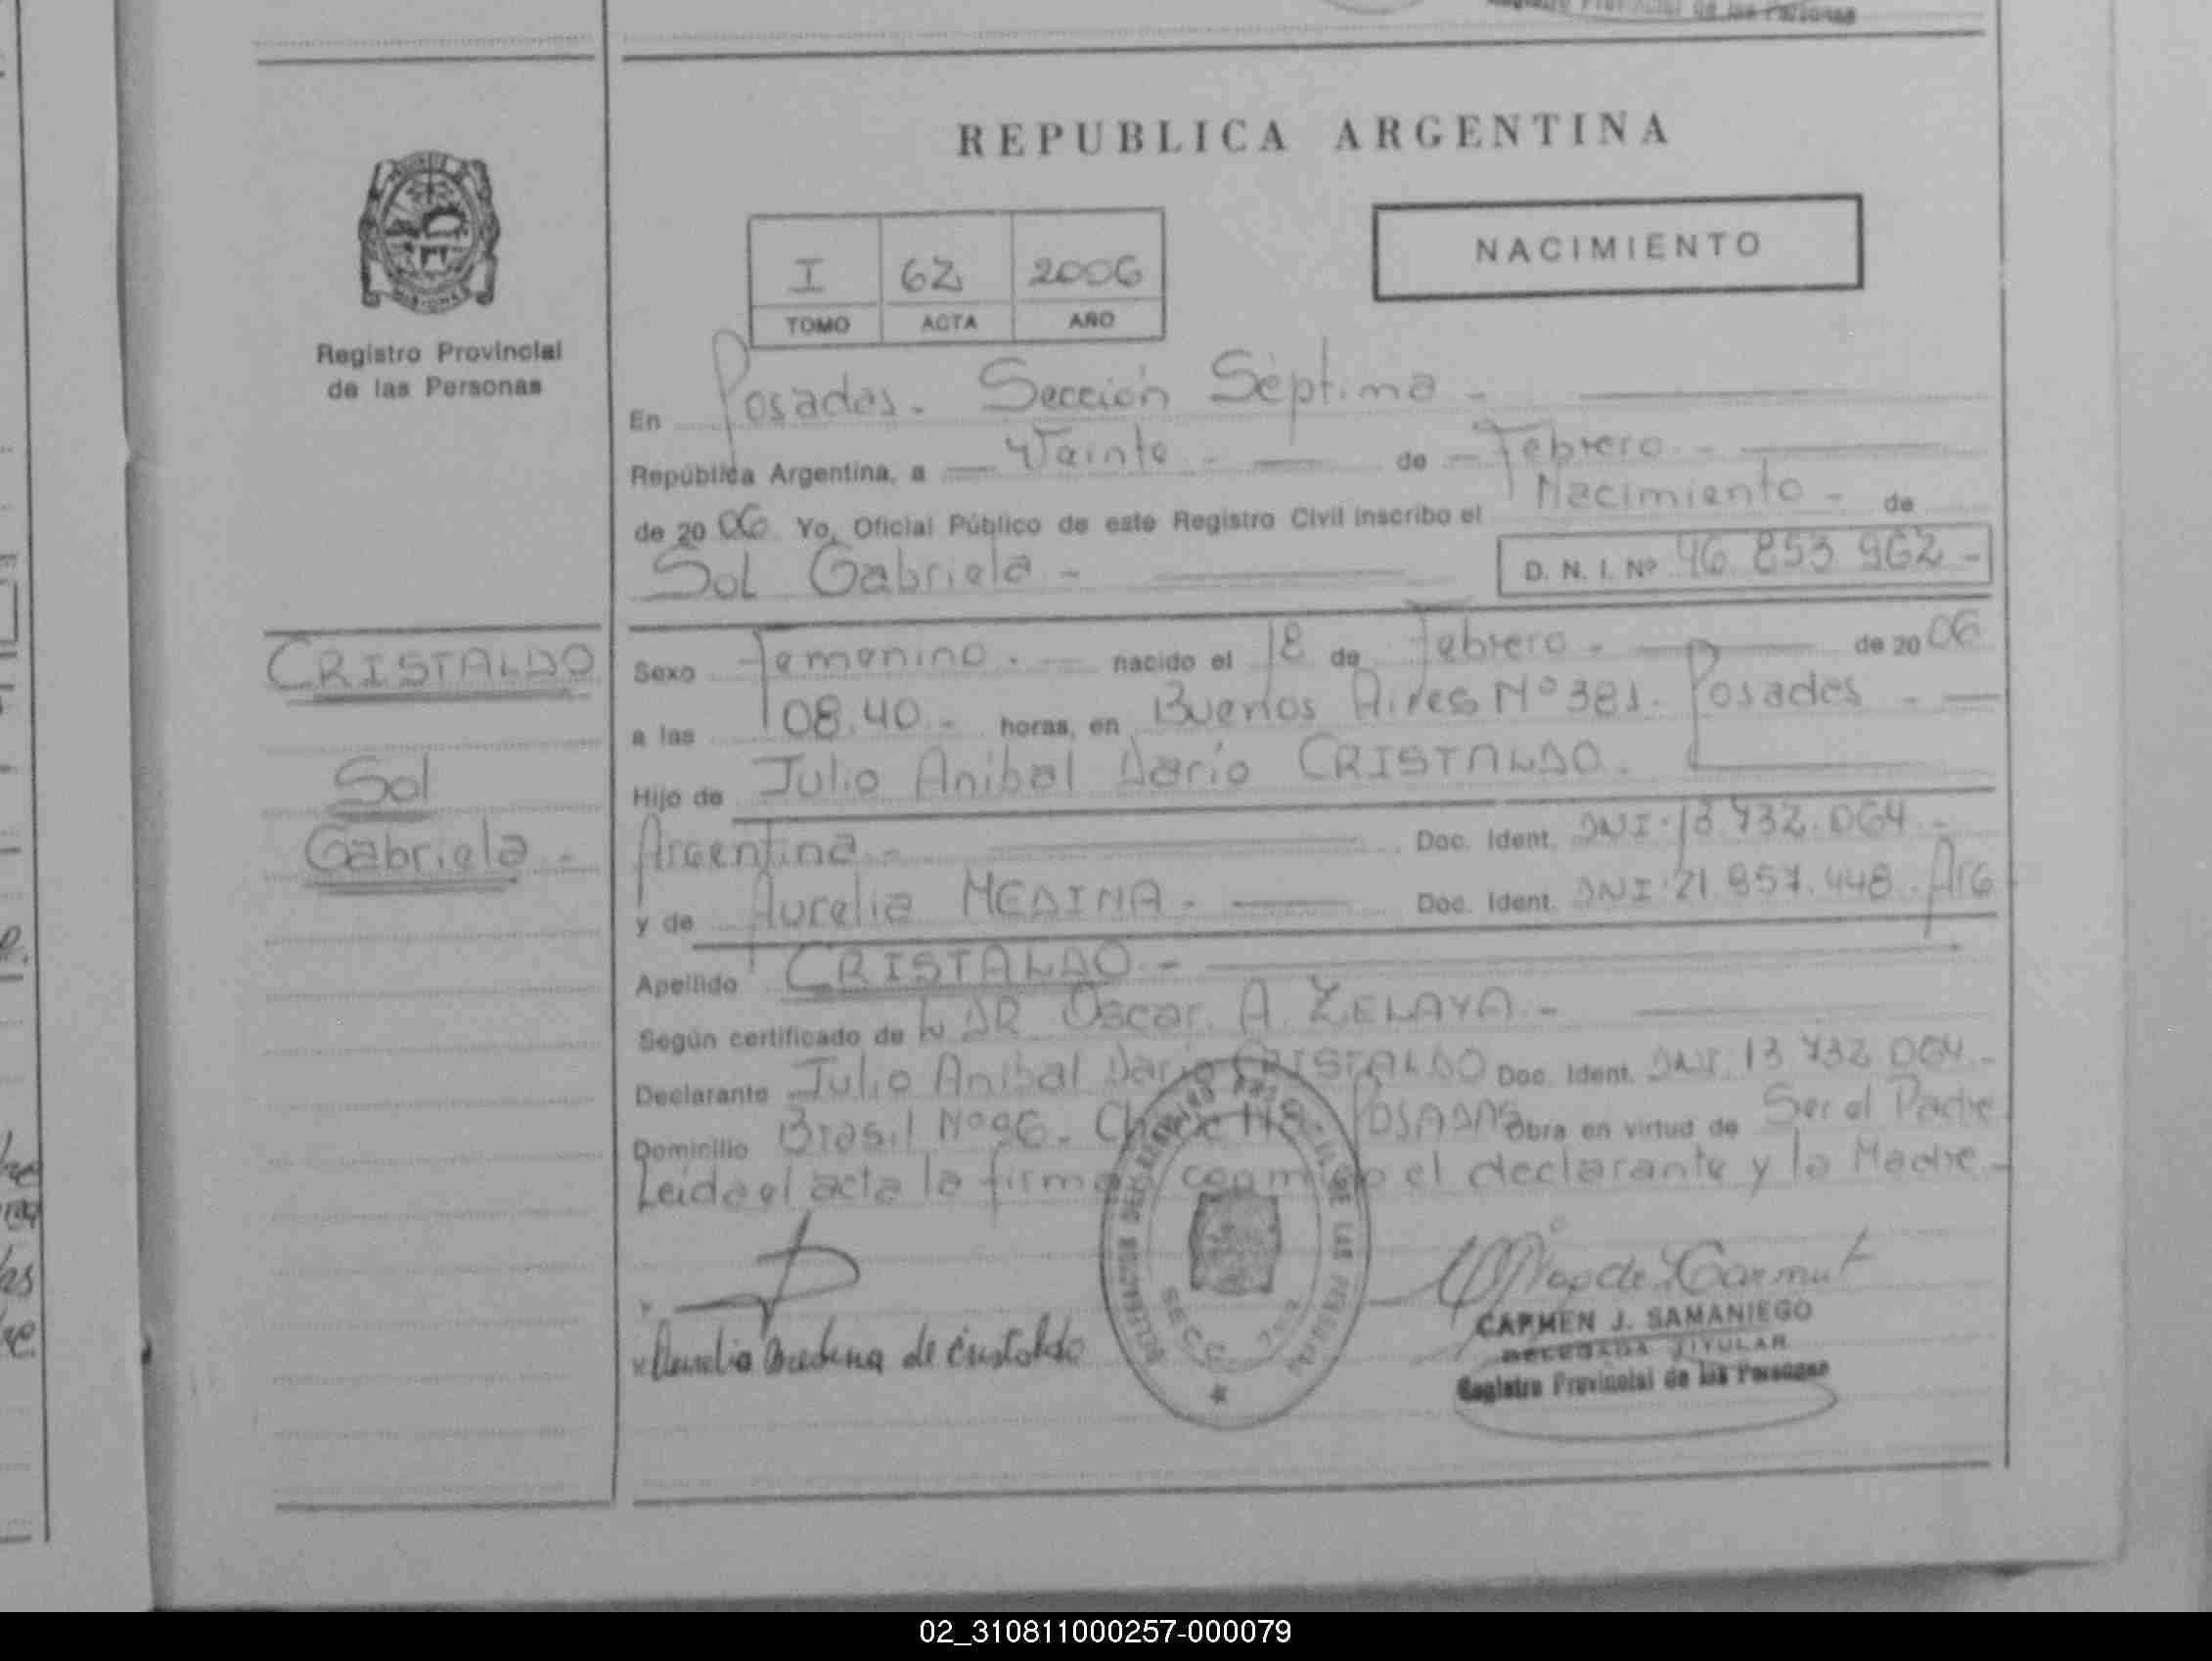 Registro Provincial de las Personas
REPUBLICA ARGENTINA
NACIMIENTO
I 62 2006
TOMO ACTA AÑO
Registro Provincial
de las Personas
En Posadas. Sección Séptima -
República Argentina, a Veinte - de Febrero. -
de 2006 Yo, Oficial Público de este Registro Civil inscribo el Nacimiento - de
Sol Gabriela -
D. N. I. Nº 46 853 962 -
CRISTALDO
Sol
Gabriela -
Sexo Femenino. - nacido el 18 de Febrero - de 2006
a las 08.40 - horas, en Buenos Aires Nº 381. Posadas -
Hijo de Julio Anibal Dario CRISTALDO.
Argentina - Doc. Ident. DNI 13.732.064 -
y de Aurelia MEDINA - Doc. Ident. DNI 21.857.448. Arg
Apellido CRISTALDO -
Según certificado de DR Oscar A. ZELAYA -
Declarante Julio Anibal Dario CRISTALDO Doc. Ident. DNI 13 732 064 -
Domicilio Brasil Nº 96. POSADAS Obra en virtud de Ser el Padre
Leida el acta la firman conmigo el declarante y la Madre -
Aurelia Medina de Cristaldo
CARMEN J. SAMANIEGO
DELEGADA TITULAR
Registro Provincial de las Personas
02_310811000257-000079